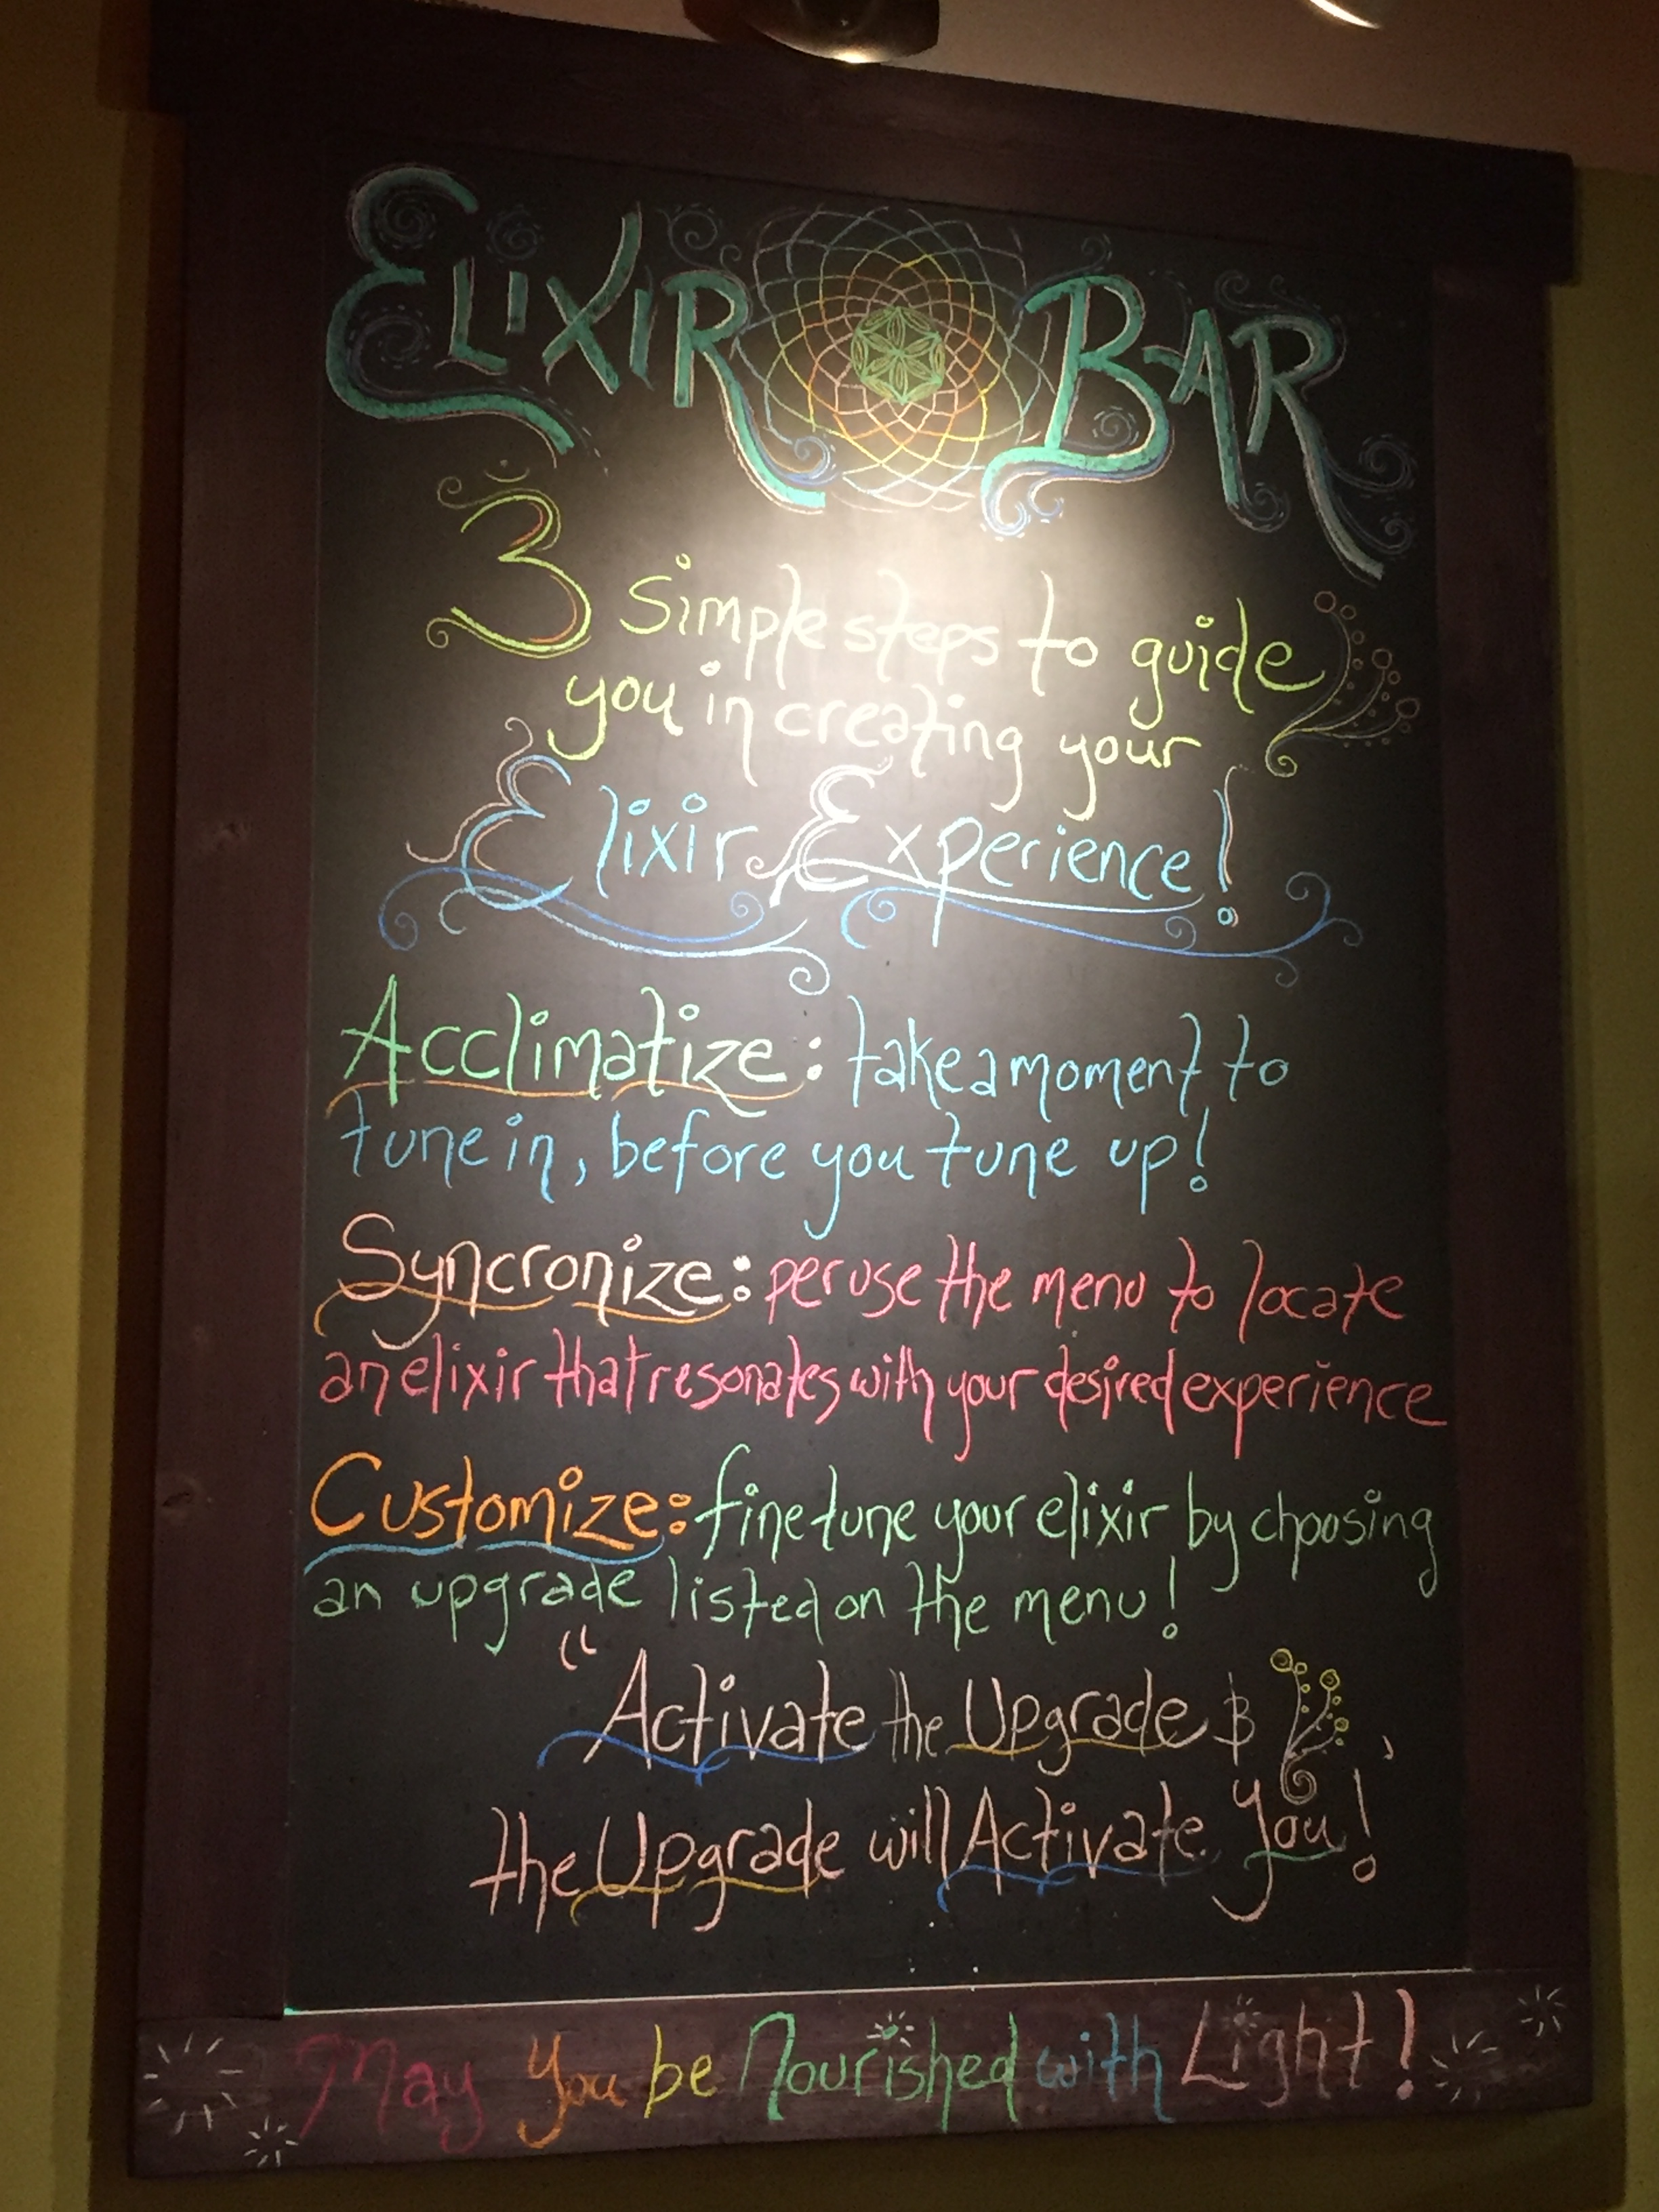 ELIXIR BAR
3 Simple steps to guide
you in creating your
Elixir Experience!
Acclimatize: take a moment to
tune in, before you tune up!
Syncronize: peruse the menu to locate
an elixir that resonates with your desired experience
Customize: fine tune your elixir by choosing
an upgrade listed on the menu!
"Activate the Upgrade &
the Upgrade will Activate You!"
May You be Nourished with Light!